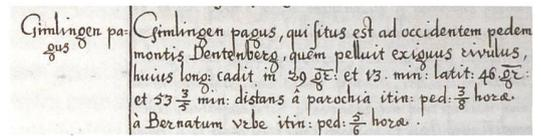 Gimlingen pa-
gus
Gimlingen pagus, qui situs est ad occidentem pedem
montis Dentenberg, quem pelluit exiguus rivulus,
huius long: cadit in 29 gr: et 13. min: latit: 46 gr:
et 53 3/5 min: distans â parochia itin: ped: 3/8 horæ.
à Bernatum vrbe itin: ped: 5/6 horæ.